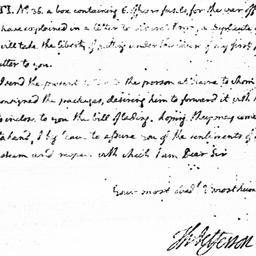 TI. No. 36. a box containing 6. officer's fusils, for the war off
have explained in a letter to
will take the liberty of putting under the cover of my first
letter to you.
I send the present to the person at Havre to whom
consigned the packages, desiring him to forward it with
inclose to you the bill of lading. hoping they may come
to hand, I beg leave to assure you of the sentiments of
esteem and respect with which I am Dear Sir
Your most obed. & most hum
Th: Jefferson